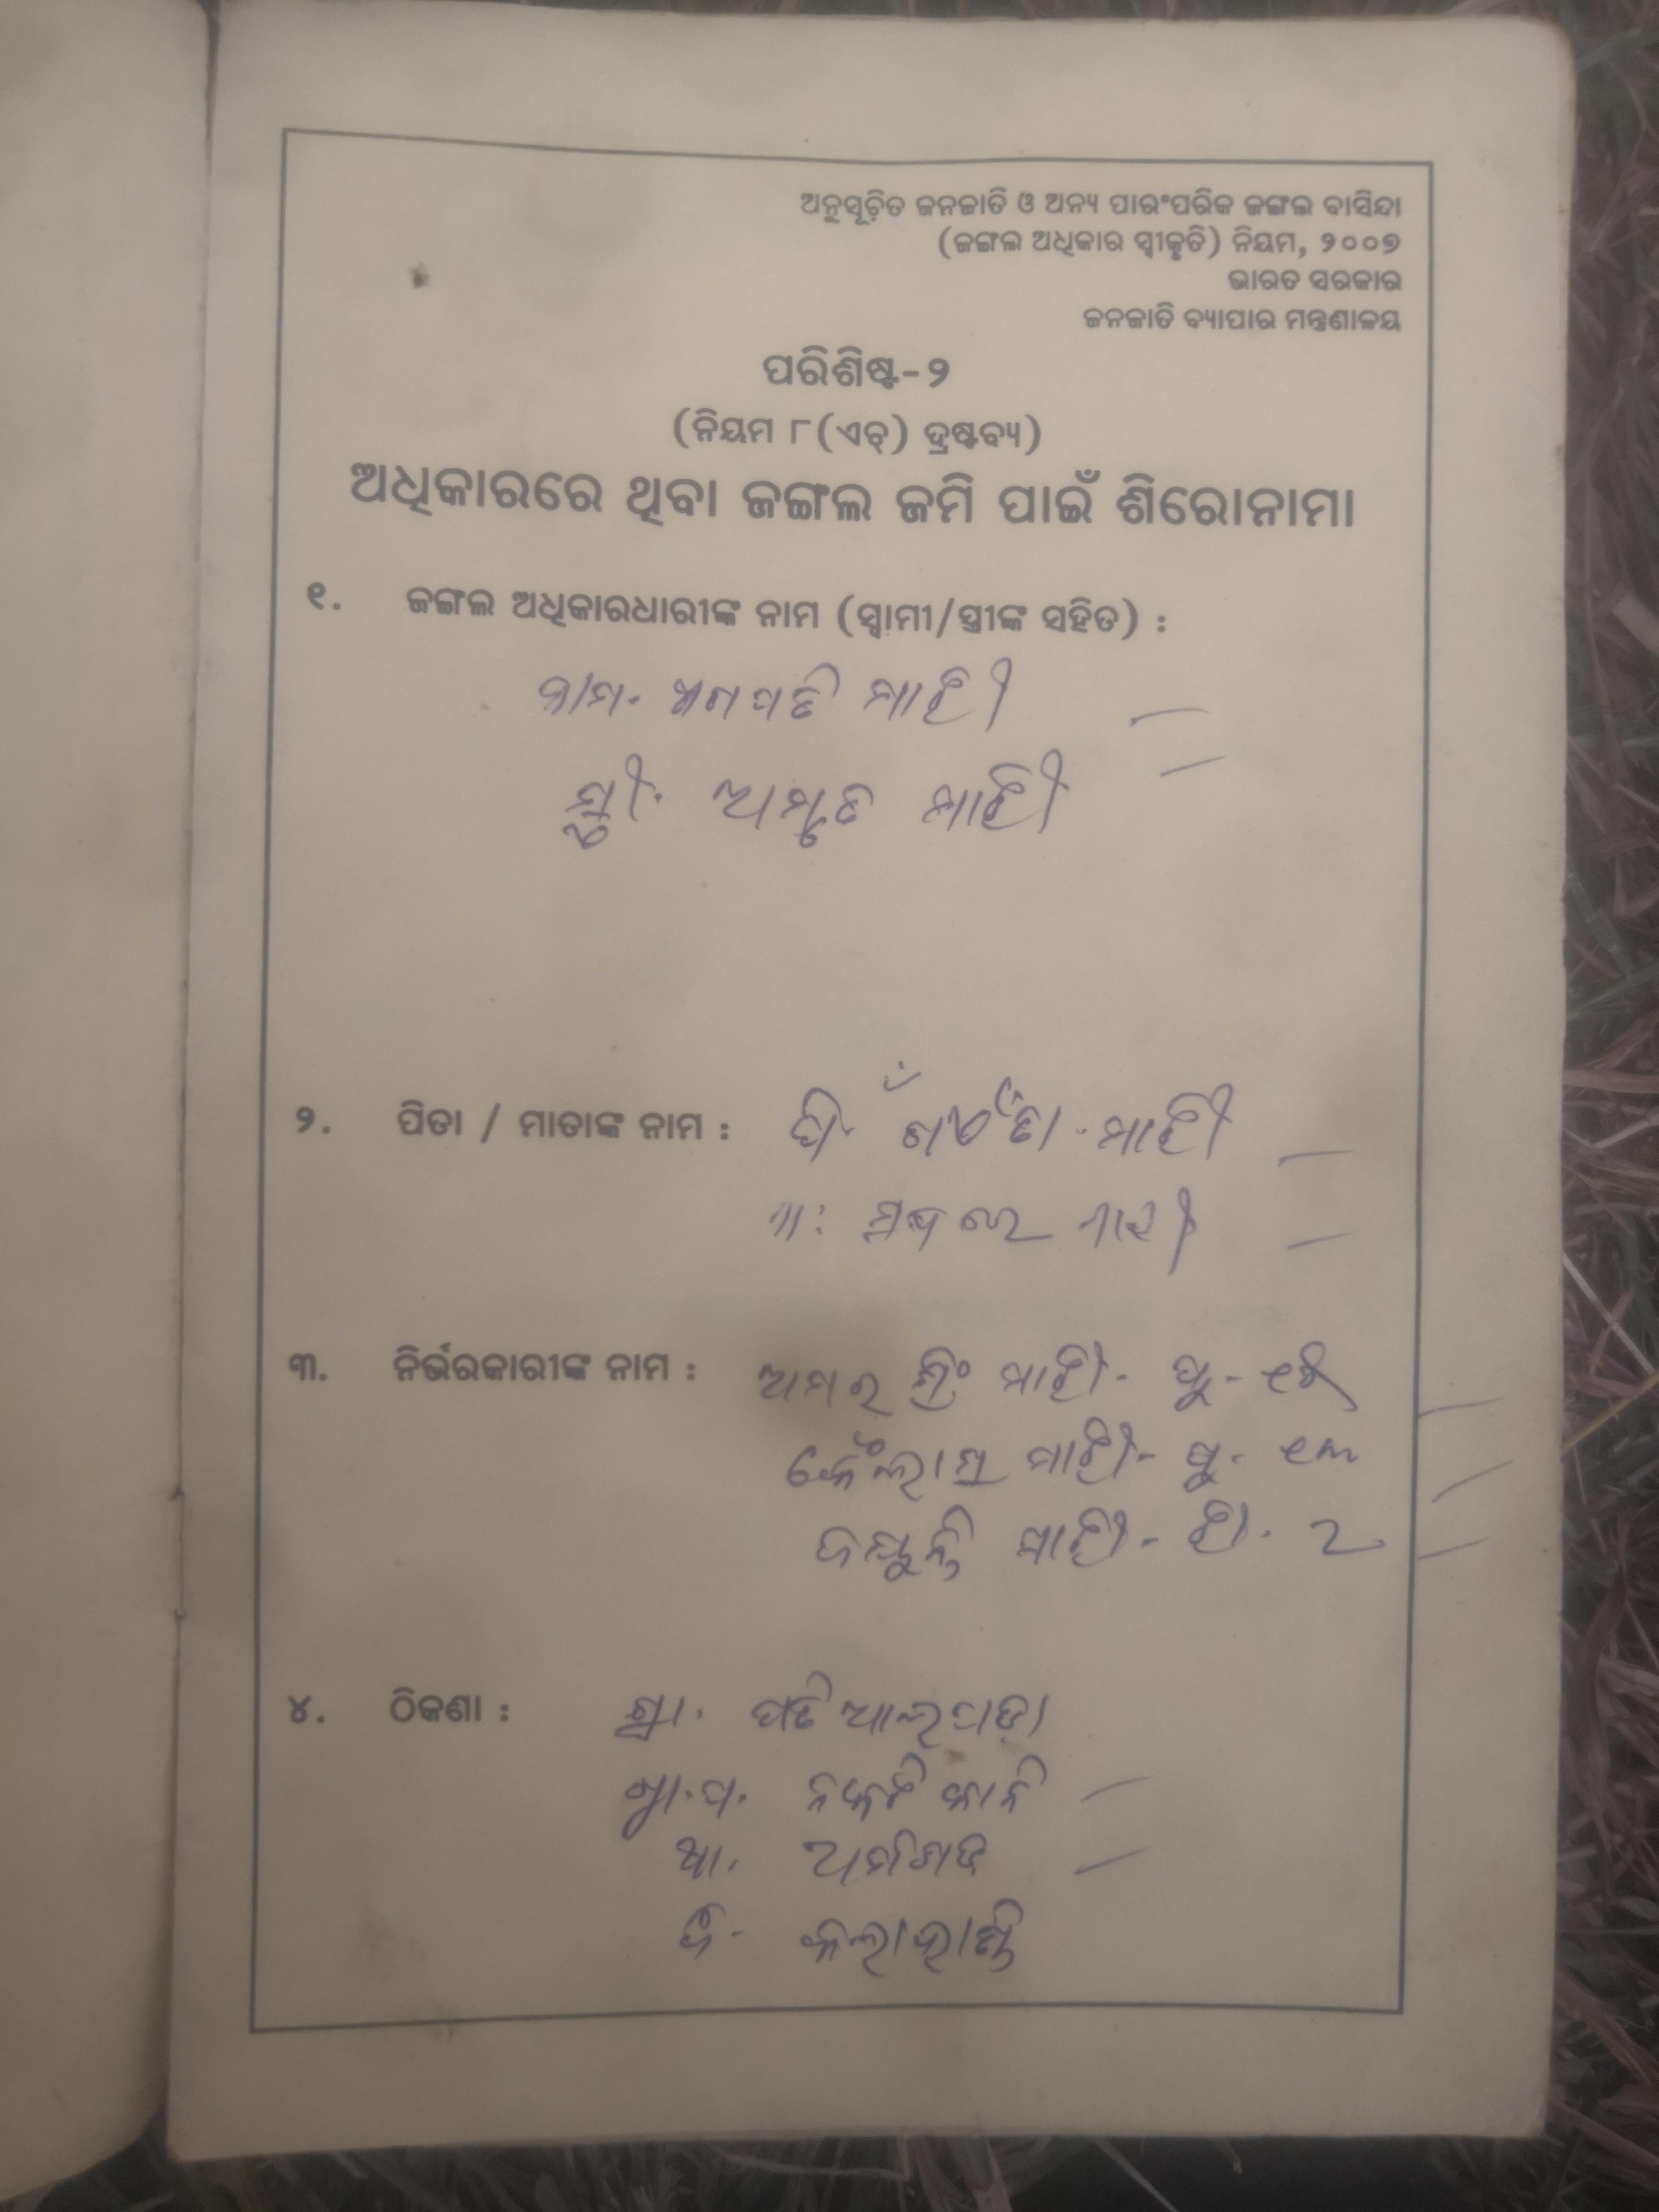 ଅନୁସୂଚିତ ଜନଜାତି ଓ ଅନ୍ୟ ପାରଂପରିକ ଜଙ୍ଗଲ ବାସିନ୍ଦା
(ଜଙ୍ଗଲ ଅଧିକାର ସ୍ୱୀକୃତି) ନିୟମ, ୨୦୦୭
ଭାରତ ସରକାର
ଜନଜାତି ବ୍ୟାପାର ମନ୍ତ୍ରଣାଳୟ
ପରିଶିଷ୍ଟ-୨
(ନିୟମ ୮(ଏଚ୍) ଦ୍ରଷ୍ଟବ୍ୟ)
ଅଧିକାରରେ ଥିବା ଜଙ୍ଗଲ ଜମି ପାଇଁ ଶିରୋନାମା
୧. ଜଙ୍ଗଲ ଅଧିକାରଧାରୀଙ୍କ ନାମ (ସ୍ୱାମୀ/ସ୍ତ୍ରୀଙ୍କ ସହିତ) :
ନାମ. ମାଝୀ
ସ୍ତ୍ରୀ. ଅମୃତ ମାଝୀ
୨. ପିତା / ମାତାଙ୍କ ନାମ : ପି. ମାଝୀ
ମା: ମାଝୀ
୩. ନିର୍ଭରକାରୀଙ୍କ ନାମ : ଅମର ସିଂ ମାଝୀ- ପୁ-
କୈଳାସ ମାଝୀ- ପୁ- ୧୩
ମାଝୀ- ଝି.
୪. ଠିକଣା : ଗ୍ରା. ପଟିଆଲପଡ଼ା
ଗ୍ରା.ପ.
ଥା.
ଜି. କଳାହାଣ୍ଡି